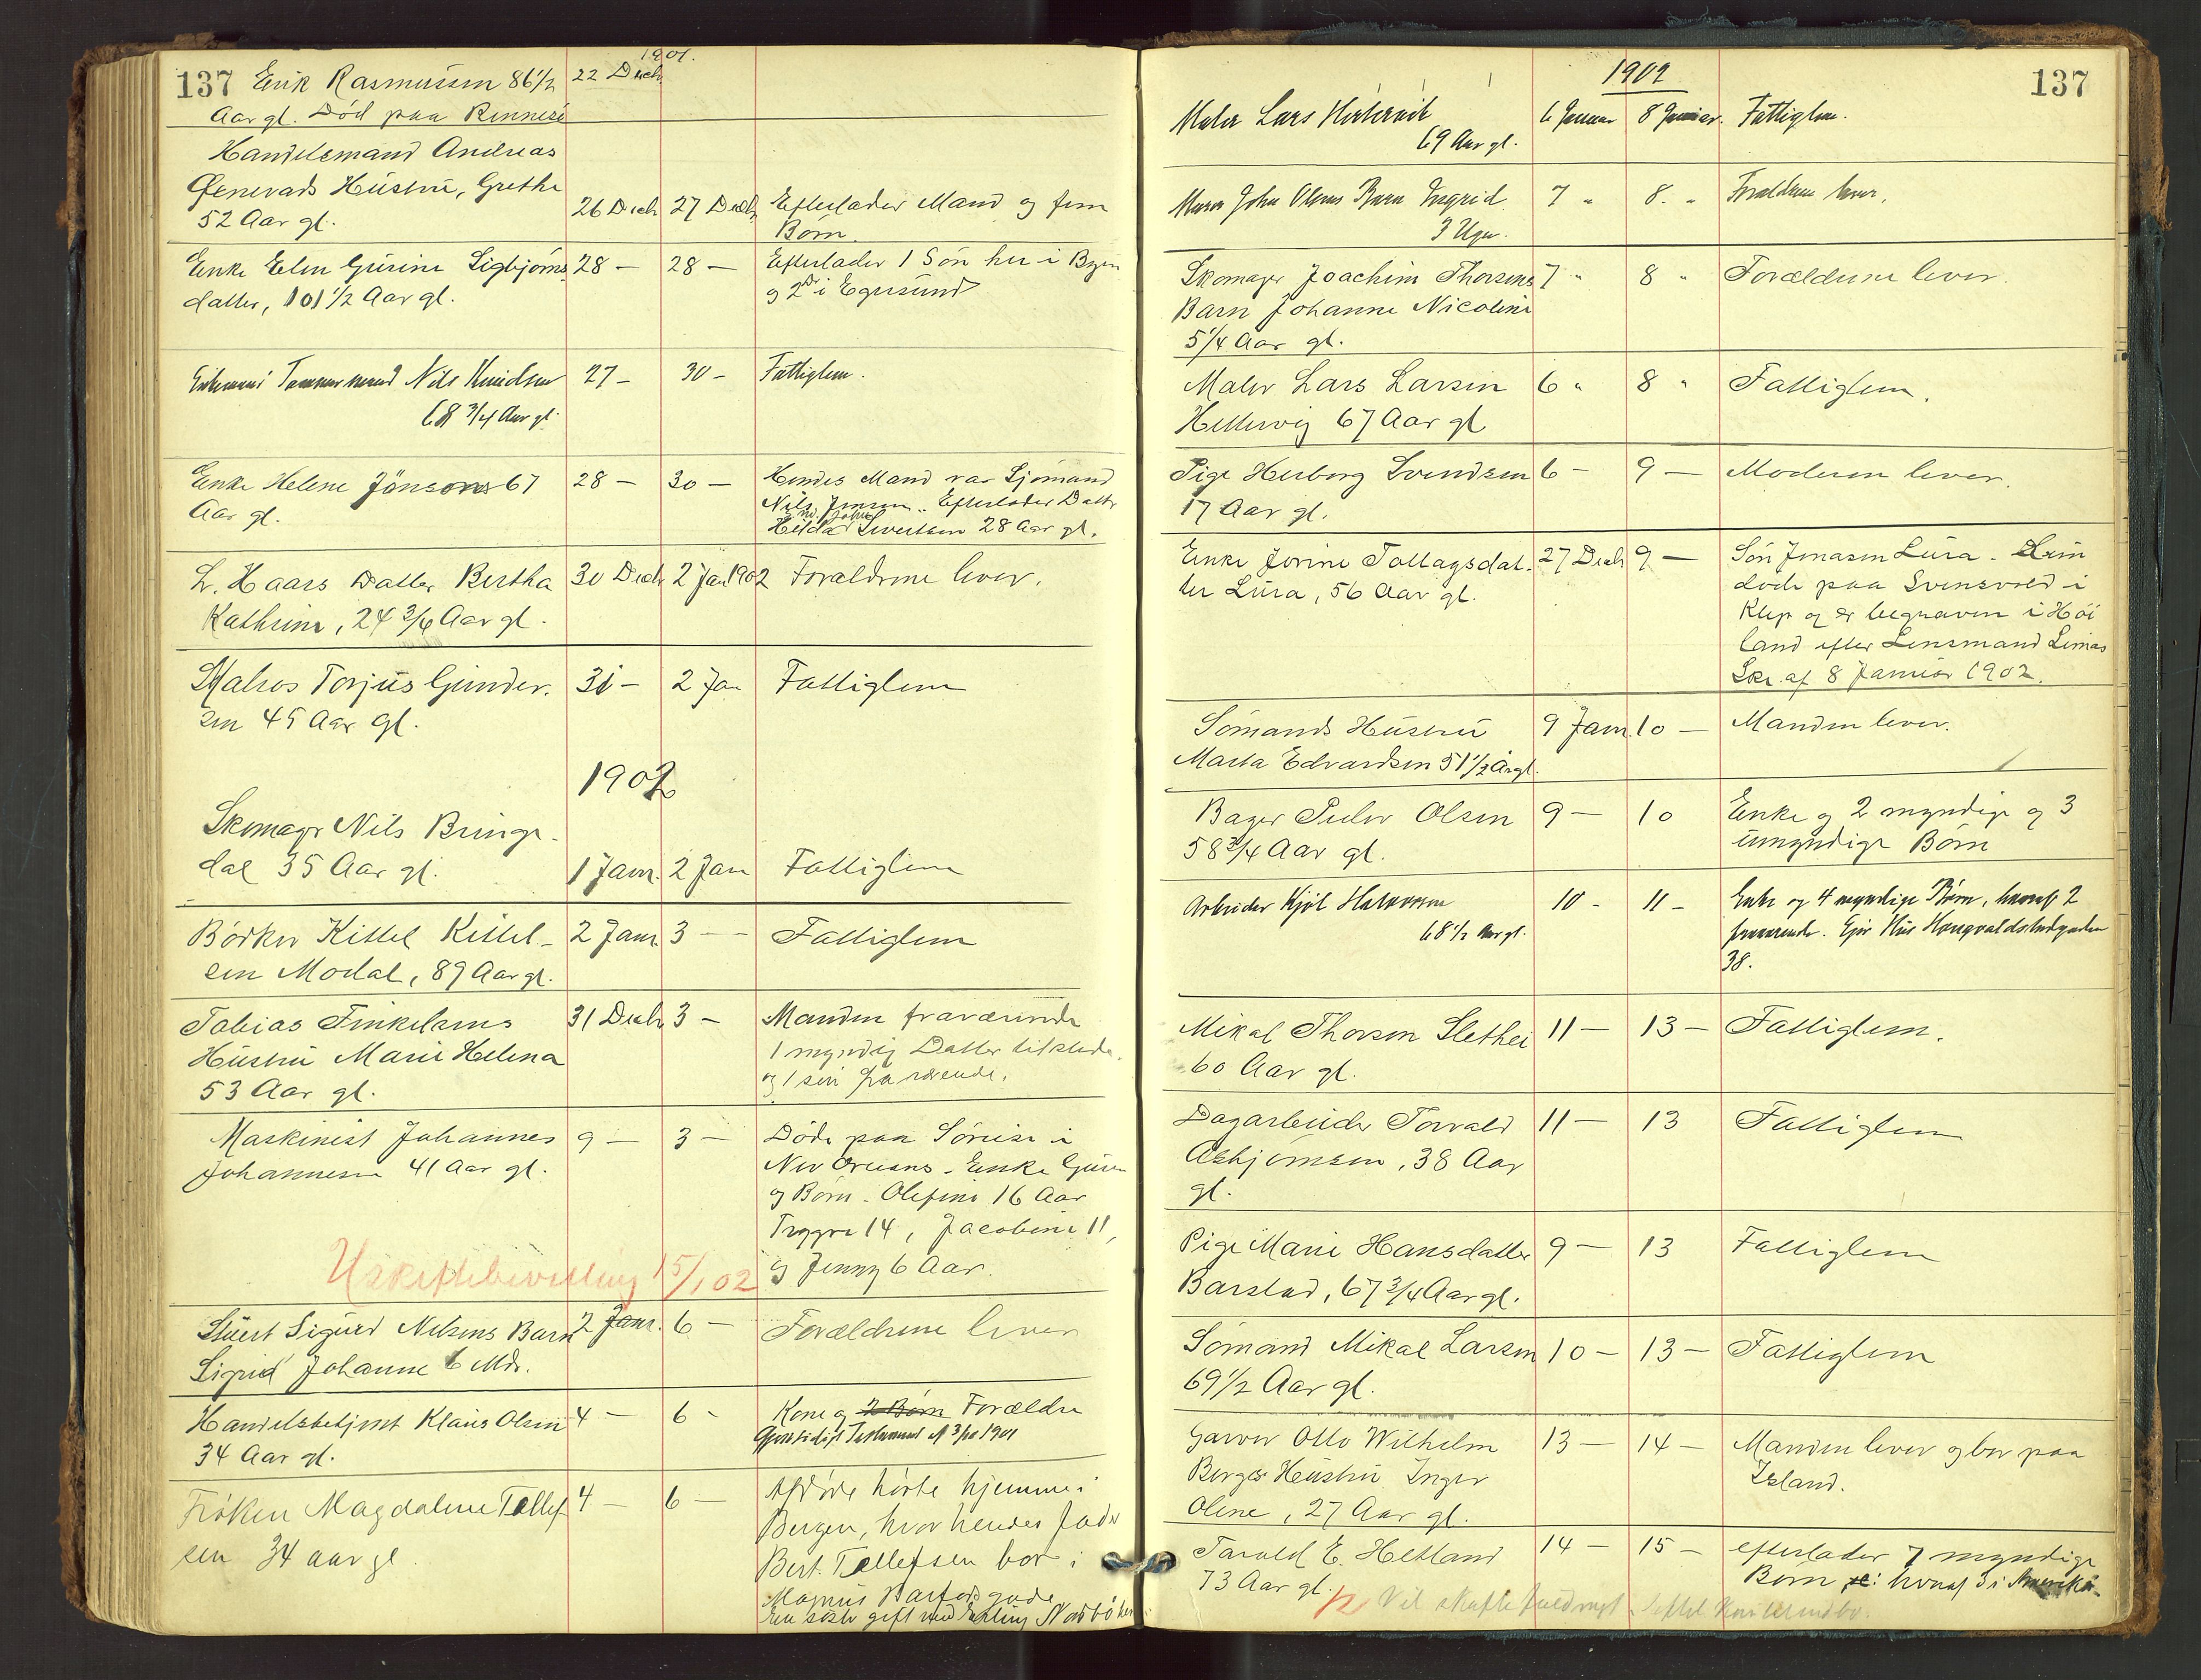 1901.
137 Erik Rasmussen 86 1/2 22 Decb
Aar gl. Død paa Rennesö
Handelsmand Andreas
Hustru, Grethe
52 Aar gl. 26 Decb 27 Decb Efterlader Mand og fem
Børn.
Enke Elen Gurine Sigbjörns 28 — 28 — Efterlader 1 Søn her i Byen
datter, 101 1/2 Aar gl. og 2 i Egersund
Tømmermand Nils Knudsen 27 — 30 — Fattiglem.
68 3/4 Aar gl.
Enke Helene Jönsons 67 28 — 30 — Hendes Mand var Sjömand
Aar gl. Nils Jonsen. Efterlader Datter
Hilda Sivertsen 28 Aar gl.
L. Haars Datter Bertha 30 Decb 2 Jan 1902 Forældrene lever.
Kathrine, 24 3/6 Aar gl.
Matros Torjus Gunder- 31 — 2 Jan Fattiglem
sen 45 Aar gl.
1902
Skomager Nils Bringe-
dal 35 Aar gl. 1 Janr. 2 Jan Fattiglem
Bödker Kittel Kittel- 2 Janr 3 — Fattiglem
sen Modal, 89 Aar gl.
Tobias Finkelsens 31 Decb 3 — Manden fraværende
Hustru Marie Helena 1 myndig Datter tilstede
53 Aar gl. og 1 sön fraværende.
Maskinist Johannes 9 — 3 — Döde paa Söreise i
Johannesen 41 Aar gl. New Orleans - Enke
og Børn - Olefine 16 Aar
Trygve 14, Jacobine 11,
og Jenny 6 Aar.
Uskiftebevilling 15/1 02
Stuert Sigurd Nilsens Barn 2 Janr. 6 — Forældrene lever
Sigrid Johanne 6 Mdr.
Handelsbetjent Klaus Olsen 4 — 6 - Kone og 2 Børn Forældre
34 Aar gl. Gjensidigt Testament 1901
Fröken Magdalene Tollef- 4 — 6 — Afdöde hörte hjemme i
sen 34 aar gl. Bergen, hvor hendes Fader
Bert. Tollefsen bor i
Magnus Barfodsgade
En söster gift med Erling
1902 137
Maler Lars Hertervig 6 Januar 8 Januar. Fattiglem.
69 Aar gl.
Murer John Olsens Barn Ingrid 7 " 8. " Forældrene lever.
3 Uger.
Skomager Joachim Thorsens 7 " 8 " Forældrene lever.
Barn Johanne Nicoline
5 1/4 Aar gl.
Maler Lars Larsen 6 " 8 " Fattiglem.
Hettervig 67 Aar gl
Pige Herborg Svendsen 6 — 9 — Moderen lever.
17 Aar gl.
Enke Jorine Tollagsdat- 27 Decb 9 — Sön Jonasen Lura - Hun
ter Lura, 56 Aar gl. döde paa Svensvold i
Klep og er begraven i Höi
land efter Lensmand Limas
Skr. af 8 Januar 1902.
Sömands Hustru 9 Janr. 10 — Manden lever.
Marta Edvardsen 51 1/2 Aar gl.
Bager Peder Olsen 9 — 10 Enke og 2 myndige og 3
58 3/4 Aar gl. umyndige Børn
Arbeider Kjöl Halvorsen 10 - 11 - Enke og 4 myndige Børn, hvoraf 2
68 1/2 Aar gl. fraværende. Ejer Hus
38.
Mikal Thorsen Slethei 11 — 13 — Fattiglem.
60 Aar gl.
Dagarbeider Torvald 11 — 13 Fattiglem
Asbjörnsen, 38 Aar
gl.
Pige Marie Hansdatter 9 — 13 Fattiglem
Barstad, 67 3/4 Aar gl.
Sömand Mikal Larsen 10 — 13 — Fattiglem
69 1/2 Aar gl.
Garver Otto Wilhelm 13 — 14 — Manden lever og bor paa
Berges Hustru Inger Island.
Olene, 27 Aar gl.
Tarald E. Hetland 14 — 15 — efterlader 7 myndige
73 Aar gl. Börn hvoraf 3 i Amerika
Vil skifte